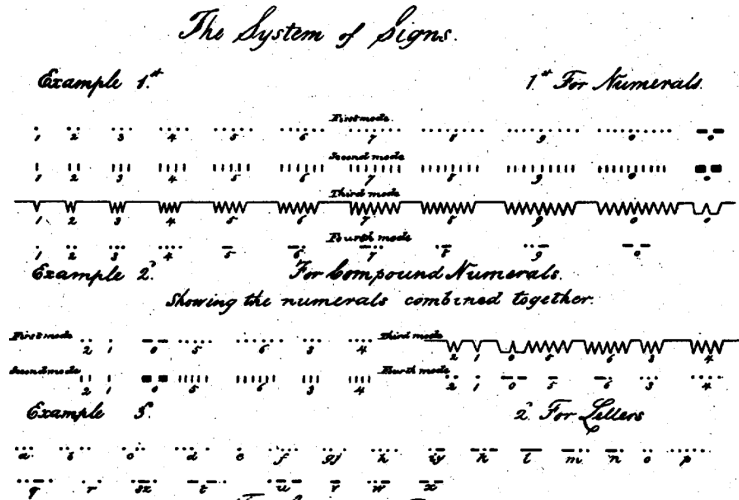 The System of Signs.
Example 1.st 1.st For Numerals.
First mode.
1 2 3 4 5 6 7 8 9 0 0
Second mode
1 2 3 4 5 6 7 8 9 0 0
Third mode
1 2 3 4 5 6 7 8 9 0 0
Fourth mode
1 2 3 4 5 6 7 8 9 0
Example 2. For Compound Numerals.
Showing the numerals combined together.
First mode 2 1 0 5 6 3 4 Third mode 2 1 0 5 6 3 4
Second mode 2 1 0 5 6 3 4 Fourth mode 2 1 0 5 6 3 4
Example 3. 2. For Letters
a b c d e f gj h iy k l m n o p
q r sz t u v w x